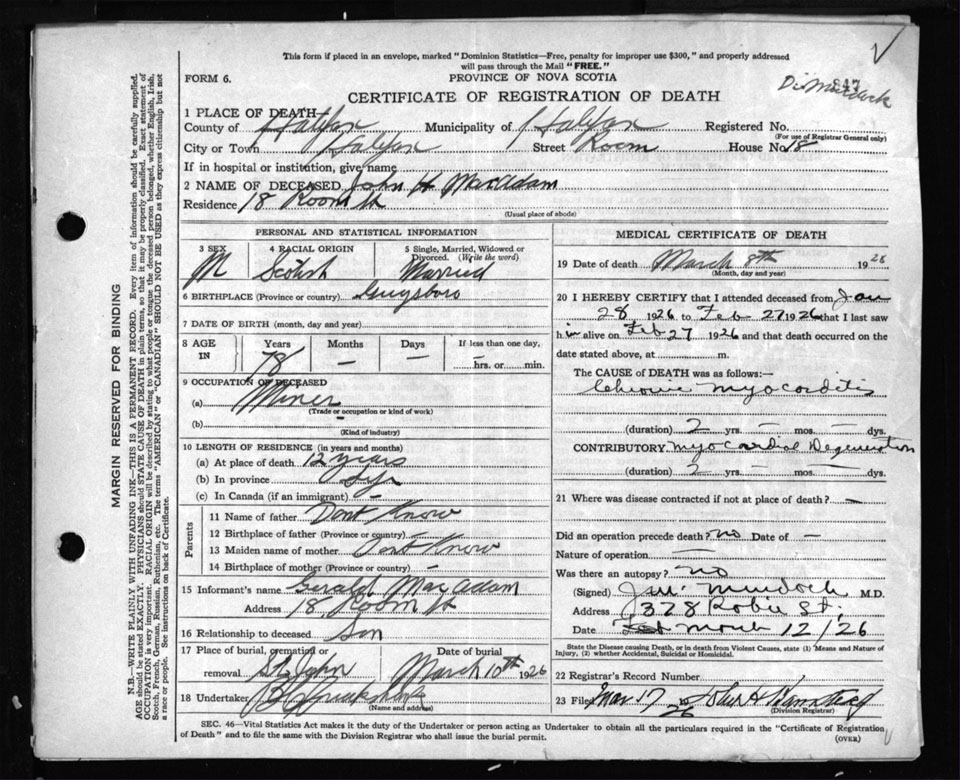 This form if placed in an envelope, marked "Dominion Statistics—Free, penalty for improper use $300," and properly addressed
will pass through the Mail "FREE."
FORM 6.
PROVINCE OF NOVA SCOTIA
CERTIFICATE OF REGISTRATION OF DEATH
1 PLACE OF DEATH—
County of Halifax Municipality of Halifax Registered No.
(For use of Registrar General only)
City or Town Halifax Street Room House No. 18
If in hospital or institution, give name
2 NAME OF DECEASED John H MacAdam
Residence 18 Room St
(Usual place of abode)
PERSONAL AND STATISTICAL INFORMATION
3 SEX 4 RACIAL ORIGIN 5 Single, Married, Widowed or
Divorced. (Write the word)
M Scotish Married
6 BIRTHPLACE (Province or country) Guysboro
7 DATE OF BIRTH (month, day and year)
8 AGE IN Years Months Days If less than one day,
78 — — — hrs. or min.
9 OCCUPATION OF DECEASED
(a) Miner
(Trade or occupation or kind of work)
(b) —
(Kind of industry)
10 LENGTH OF RESIDENCE (in years and months)
(a) At place of death 12 years
(b) In province Life
(c) In Canada (if an immigrant) —
Parents
11 Name of father Dont Know
12 Birthplace of father (Province or country)
13 Maiden name of mother Dont Know
14 Birthplace of mother (Province or country) —
15 Informant's name Gerald MacAdam
Address 18 Room St
16 Relationship to deceased Son
17 Place of burial, cremation or removal Date of burial
St John March 10th 1926
18 Undertaker
(Name and address)
MEDICAL CERTIFICATE OF DEATH
19 Date of death March 8th 1926
(Month, day and year)
20 I HEREBY CERTIFY that I attended deceased from Jan
28 1926 to Feb 27 1926 that I last saw
him alive on Feb 27 1926 and that death occurred on the
date stated above, at m.
The CAUSE of DEATH was as follows:—
Chronic myocarditis
(duration) 2 yrs. — mos. — dys.
CONTRIBUTORY myocardial Degeneration
(duration) 2 yrs. — mos. — dys.
21 Where was disease contracted if not at place of death? —
Did an operation precede death? no Date of —
Nature of operation —
Was there an autopsy? no
(Signed) Murdoch M.D.
Address 378 Robie St.
Date March 12/26
State the Disease causing Death, or in death from Violent Causes, state (1) Means and Nature of
Injury, (2) whether Accidental, Suicidal or Homicidal.
22 Registrar's Record Number
23 Filed Mar 17 1926
(Division Registrar)
SEC. 46—Vital Statistics Act makes it the duty of the Undertaker or person acting as Undertaker to obtain all the particulars required in the "Certificate of Registration
of Death" and to file the same with the Division Registrar who shall issue the burial permit.
(OVER)
MARGIN RESERVED FOR BINDING
N.B.—WRITE PLAINLY WITH UNFADING INK—THIS IS A PERMANENT RECORD. Every item of information should be carefully supplied.
AGE should be stated EXACTLY. PHYSICIANS should STATE CAUSE OF DEATH in plain terms, so that it may be properly classified. Exact statement of
OCCUPATION is very important. RACIAL ORIGIN will be described by stating to what people or tongue the deceased person belonged, whether English, Irish,
Scotch, French, German, Russian, Ruthenian, etc. The terms "AMERICAN" or "CANADIAN" SHOULD NOT BE USED as they express citizenship but not
a race or people. See instructions on back of Certificate.